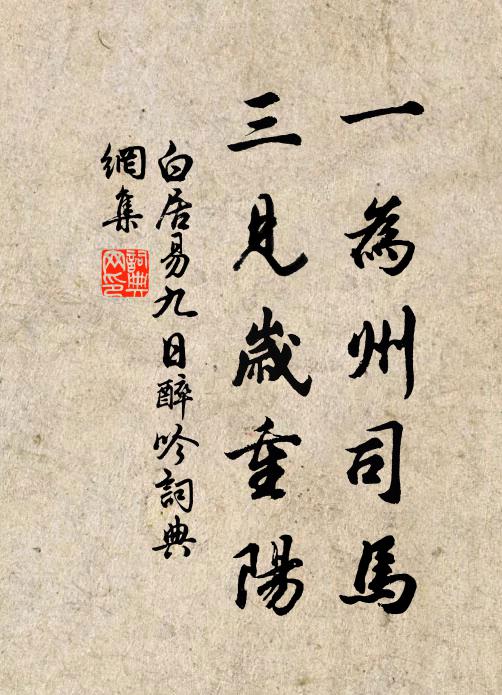 一為州司馬
三見歲重陽
白居易九日醉吟詞典
網集
詞典
网印